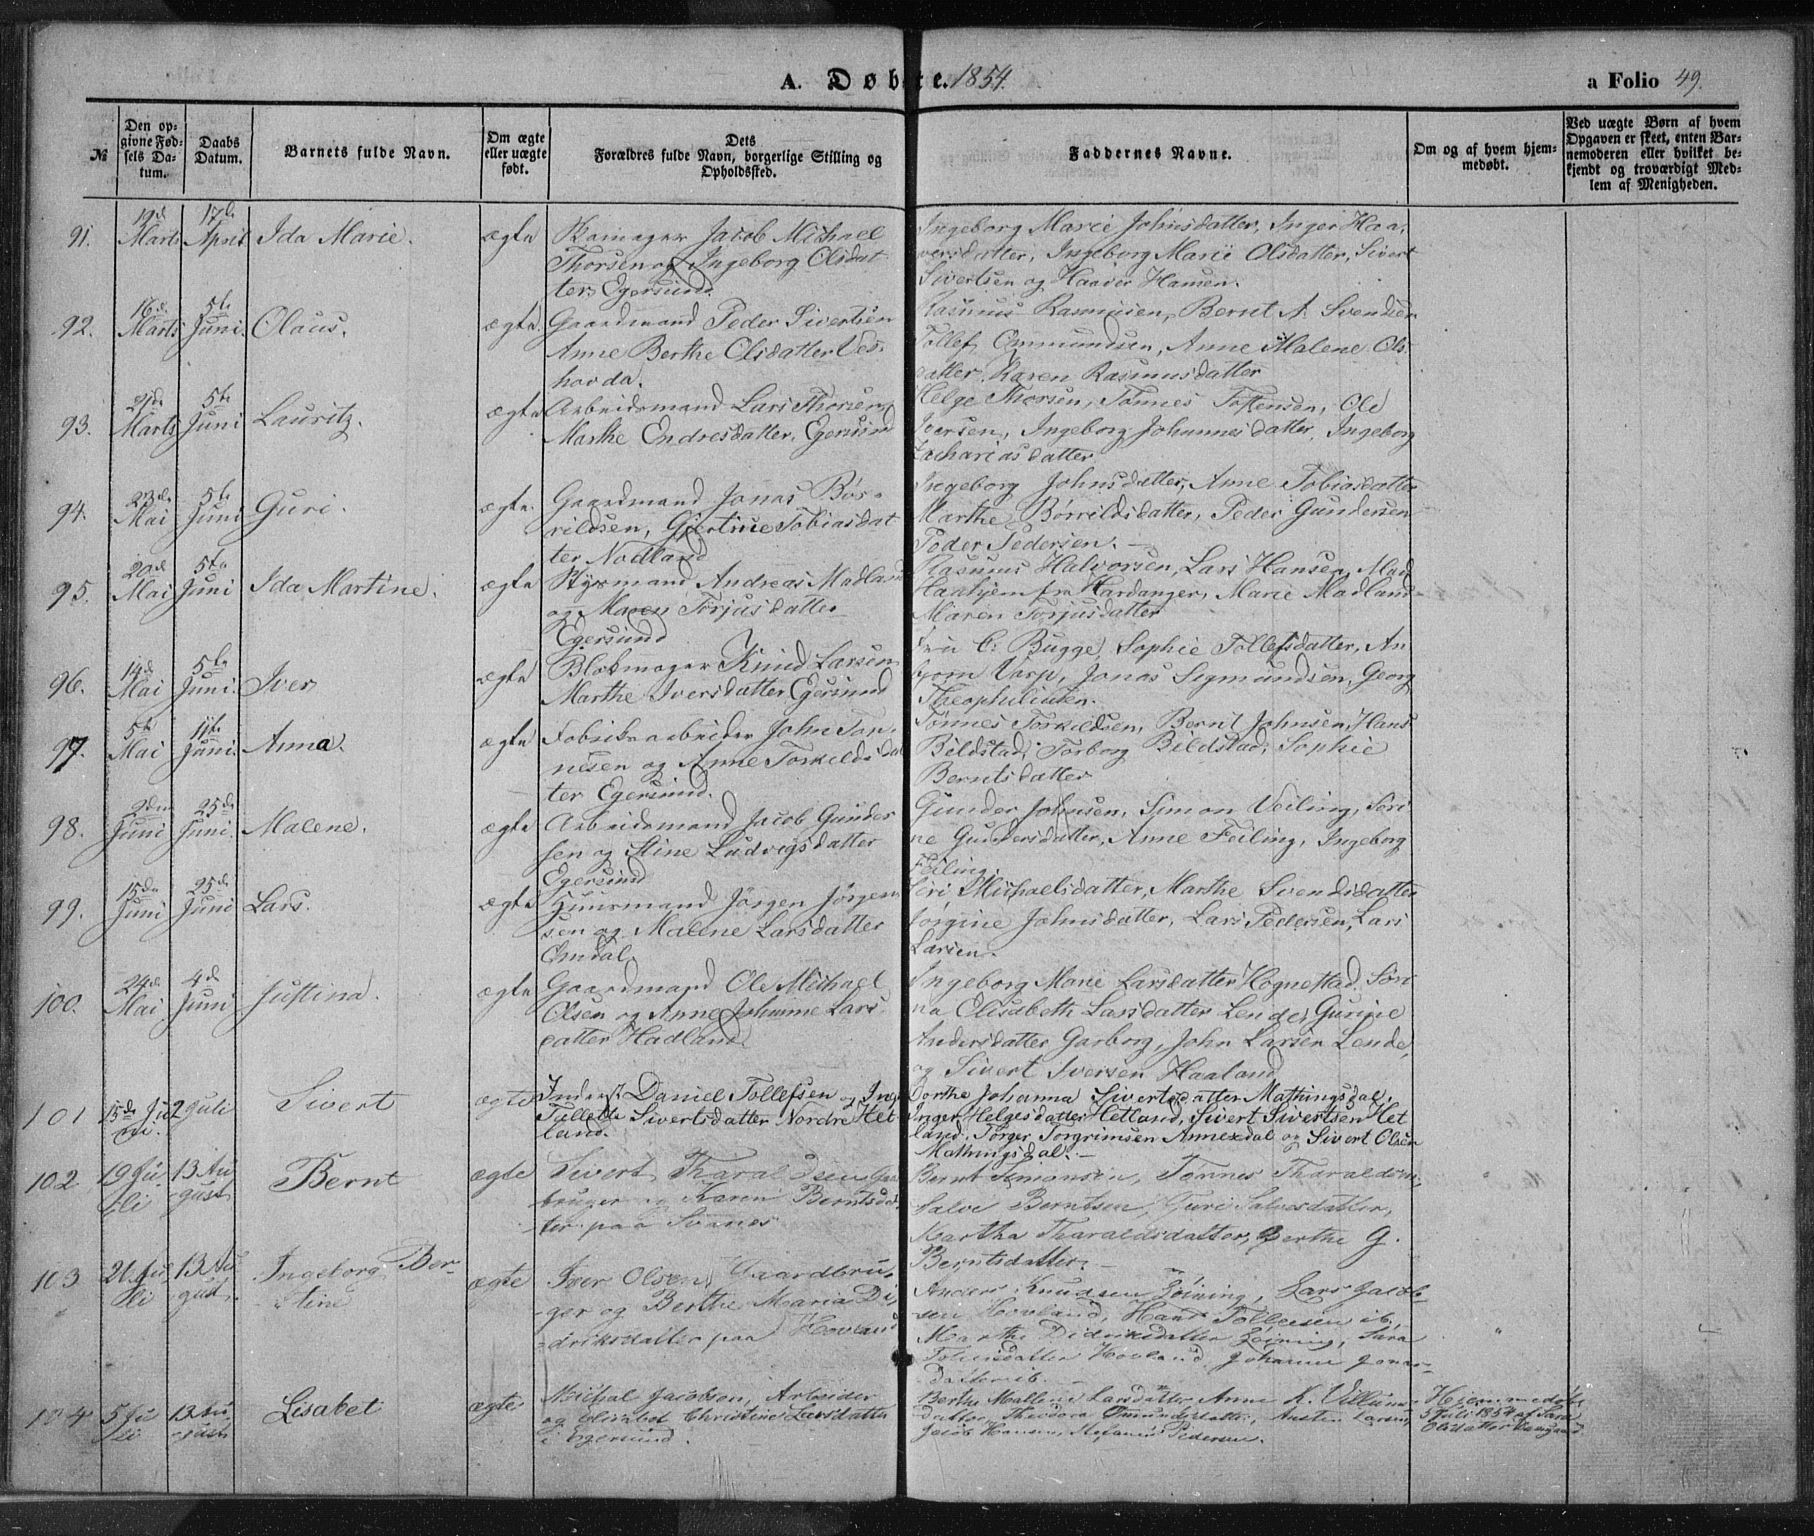 A. Døbte. 1854.
a Folio 49.
№
Den opgivne Fødsels Datum.
Daabs Datum.
Barnets fulde Navn.
Om ægte eller uægte født.
Dets Forældres fulde Navn, borgerlige Stilling og Opholdssted.
Faddernes Navne.
Om og af hvem hjemmedøbt.
Ved uægte Børn af hvem Opgaven er skeet, enten Barnemoderen eller hvilket bekjendt og troværdigt Medlem af Menigheden.
91. 19de Marts 17de April Ida Marie. ægte
Jacob Michael
Thorsen og Ingeborg Olsdat
ter Egersund.
Ingeborg Marie Johnsdatter, Inger Haa,
versdatter, Ingeborg Marie Olsdatter, Sivert
Sivertsen og Haaver Hansen.
92. 16de Marts 5te Juni. Olaus. ægte.
Gaardmand Peder Sivertsen
Anne Berthe Olsdatter Ves,
hovda.
Rasmus Rasmusen, Bernt A. Svendsen
Tollef Ommundsen, Anne Malene Ols
datter, Karen Rasmusdatter
93. 21de Marts 5te Juni Lauritz. ægte
Arbeidsmand Lars Thorsen,
Marthe Endresdatter, Egersund
Helge Thorsen, Tønnes Tostensen, Ole
Iversen, Ingeborg Johannesdatter, Ingeborg
Zachariasdatter
94. 23de Mai 5te Juni Guri. ægte.
Gaardmand Jonas Bør,
rildsen, Gjertine Tobiasdat
ter Nodland
Ingeborg Johnsdatter, Anne Tobiasdatter
Marthe Børrildsdatter, Peder Gundersen
Peder Pedersen.
95. 20de Mai 5te Juni Ida Martine. ægte
Styrmand Andreas Madland
og Maren Torjusdatter
Egersund
Rasmus Halvorsen, Lars Hansen, Mad
fra Hardanger, Marie Madland
Maren Torjusdatter
96. 14de Mai 5te Juni. Iver ægte
Blokmager Knud Larsen
Marthe Iversdatter Egersund
Fru C. Bugge, Sophie Tollefsdatter, An
bjorn Varp, Jonas Sigmundsen, Georg
97. 5te Mai 11te Juni. Anna. ægte
Fabriksarbeider John Tøn,
nesen og Anne Torkeldsdat
ter Egersund.
Tønnes Torkeldsen, Bernt Johnsen, Hans
Bildstad, Torborg Bildstad, Sophie
Berntsdatter
98. 2den Juni 25de Juni. Malene. ægte
Arbeidsmand Jacob Gunder
sen og Stine Ludvigsdatter
Egersund
Gunder Johnsen, Simon Veiling, Søri
ne Gundersdatter, Anne Feiling, Ingeborg
Feiling.
99. 15de Juni 25de Juni Lars. ægte
Huusmand Jørgen Jørgen
sen og Malene Larsdatter
Omdal.
Siri Michaelsdatter, Marthe Svendsdatter
Jorgine Johnsdatter, Lars Pedersen, Lars
Larsen.
100. 24de Mai 4de Juni Justina. ægte
Gaardmand Ole Michael
Olsen og Anne Johanne Lars,
datter Hadland.
Ingeborg Marie Larsdatter Hognestad, Søri
na Elisabeth Larsdatter Lende, Gurine
Andersdatter Garborg, John Larsen Lende,
og Sivert Iversen Haaland
101 15de Juni. 2 Juli Sivert ægte
Inderst Daniel Tollefsen og Ing
Tallette Sivertsdatter Nordre Het
land.
Dorthe Johanna Sivertsdatter Mathingsdal,
Inger Helgesdatter Hetland, Sivert Sivertsen Het
land, Tørger Torgrimsen Annexdal og Sivert Olsen
Mathingsdal.
102 19 Juli 13 August Bernt ægte
Sivert Tharaldsen Gaa
bruger og Karen Berntsdat
ter paa Svanes
Bernt Simonsen, Tønnes Tharaldsen,
Salve Berntsen, Guri Salvesdatter,
Martha Tharaldsdatter, Berthe G.
Berntsdatter.
103 21 Juli 13 August. Ingeborg Ber-
stine ægte
Iver Olsen, Gaardbru-
ger og Berthe Maria Di,
driksdatter paa Hovland
Anders Knudsen Løining, Lars Jacob-
sen Hovland, Hans Tollefsen ib.,
Marthe Didriksdatter Løining, Sara
Hovland, Johanne Jonas-
datter ib.
104 5 Juli 13 August Lisabet ægte
Michal Jacobsen, Arbeider
og Elisabet Christine Larsdatter
i Egersund.
Berthe Malene Larsdatter, Anne K. Villums
datter, Theodora Omundsdatter, Austen Larsen,
Jacob Hansen, Stefanus Pedersen.
Hjemmedøbt
5 Juli 1854 af Sara
Olsdatter